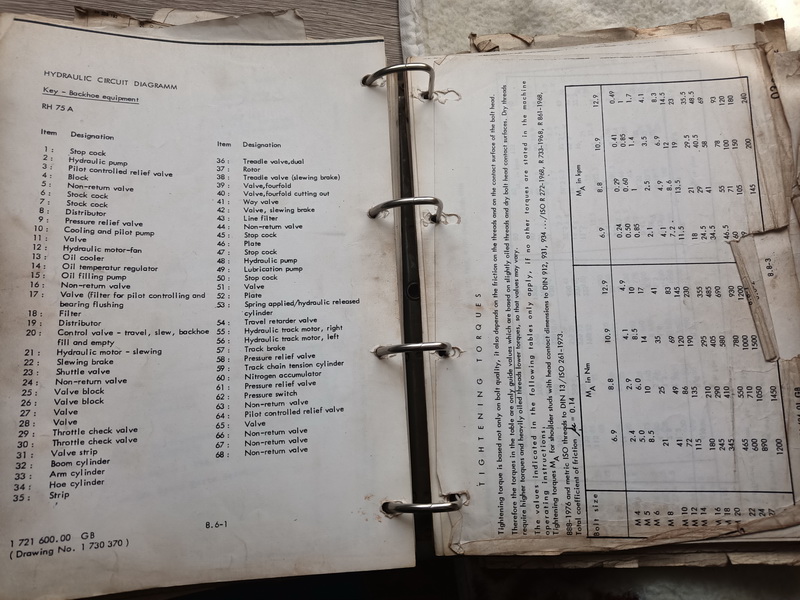 HYDRAULIC CIRCUIT DIAGRAMM
Key - Backhoe equipment
RH 75 A
Item Designation
1 : Stop cock
2 : Hydraulic pump
3 : Pilot controlled relief valve
4 : Block
5 : Non-return valve
6 : Stock cock
7 : Stock cock
8 : Distributor
9 : Pressure relief valve
10 : Cooling and pilot pump
11 : Valve
12 : Hydraulic motor-fan
13 : Oil cooler
14 : Oil temperatur regulator
15 : Oil filling pump
16 : Non-return valve
17 : Valve (filter for pilot controlling and
bearing flushing
18 : Filter
19 : Distributor
20 : Control valve - travel, slew, backhoe
fill and empty
21 : Hydraulic motor - slewing
22 : Slewing brake
23 : Shuttle valve
24 : Non-return valve
25 : Valve block
26 : Valve block
27 : Valve
28 : Valve
29 : Throttle check valve
30 : Throttle check valve
31 : Valve strip
32 : Boom cylinder
33 : Arm cylinder
34 : Hoe cylinder
35 : Strip
Item Designation
36 : Treadle valve,dual
37 : Rotor
38 : Treadle valve (slewing brake)
39 : Valve,fourfold
40 : Valve,fourfold cutting out
41 : Way valve
42 : Valve, slewing brake
43 : Line filter
44 : Non-return valve
45 : Stop cock
46 : Plate
47 : Stop cock
48 : Hydraulic pump
49 : Lubrication pump
50 : Stop cock
51 : Valve
52 : Plate
53 : Spring applied/hydraulic released
cylinder
54 : Travel retarder valve
55 : Hydraulic track motor, right
56 : Hydraulic track motor, left
57 : Track brake
58 : Pressure relief valve
59 : Track chain tension cylinder
60 : Nitrogen accumulator
61 : Pressure relief valve
62 : Pressure switch
63 : Non-return valve
64 : Pilot controlled relief valve
65 : Valve
66 : Non-return valve
67 : Non-return valve
68 : Non-return valve
8.6-1
1 721 600.00 GB
( Drawing No. 1 730 370 )
TIGHTENING TORQUES
Tightening torque is based not only on bolt quality, it also depends on the friction on the threads and on the contact surface of the bolt head.
Therefore the torques in the table are only guide values which are based on slightly oiled threads and dry bolt head contact surfaces. Dry threads
require higher torques and heavily oiled threads lower torques, so that values may vary.
The values indicated in the following tables only apply, if no other torques are stated in the machine
operating instructions.
Tightening torques MA for shoulder studs with head contact dimensions to DIN 912, 931, 934 ../ISO R 272-1968, R 733-1968, R 861-1968,
888-1976 and metric ISO threads to DIN 13/ISO 261-1973.
Total coefficient of friction µ = 0.14
Bolt size MA in Nm MA in kpm
6.9 8.8 10.9 12.9 6.9 8.8 10.9 12.9
M 4 2.4 2.9 4.1 4.9 0.24 0.29 0.41 0.49
M 5 5.0 6.0 8.5 10 0.50 0.60 0.85 1
M 6 8.5 10 14 17 0.85 1 1.4 1.7
M 8 21 25 35 41 2.1 2.5 3.5 4.1
M 10 41 49 69 83 4.1 4.9 6.9 8.3
M 12 72 86 120 145 7.2 8.6 12 14.5
M 14 115 135 190 230 11.5 13.5 19 23
M 16 180 210 295 355 18 21 29.5 35.5
M 18 245 290 405 485 24.5 29 40.5 48.5
M 20 345 410 580 690 34.5 41 58 69
22 465 550 780 930 46.5 55 78 93
24 600 710 1000 1200 60 71 100 120
27 890 1050 1500 105 150 180
1200 1450 145 200 240
8.8-3